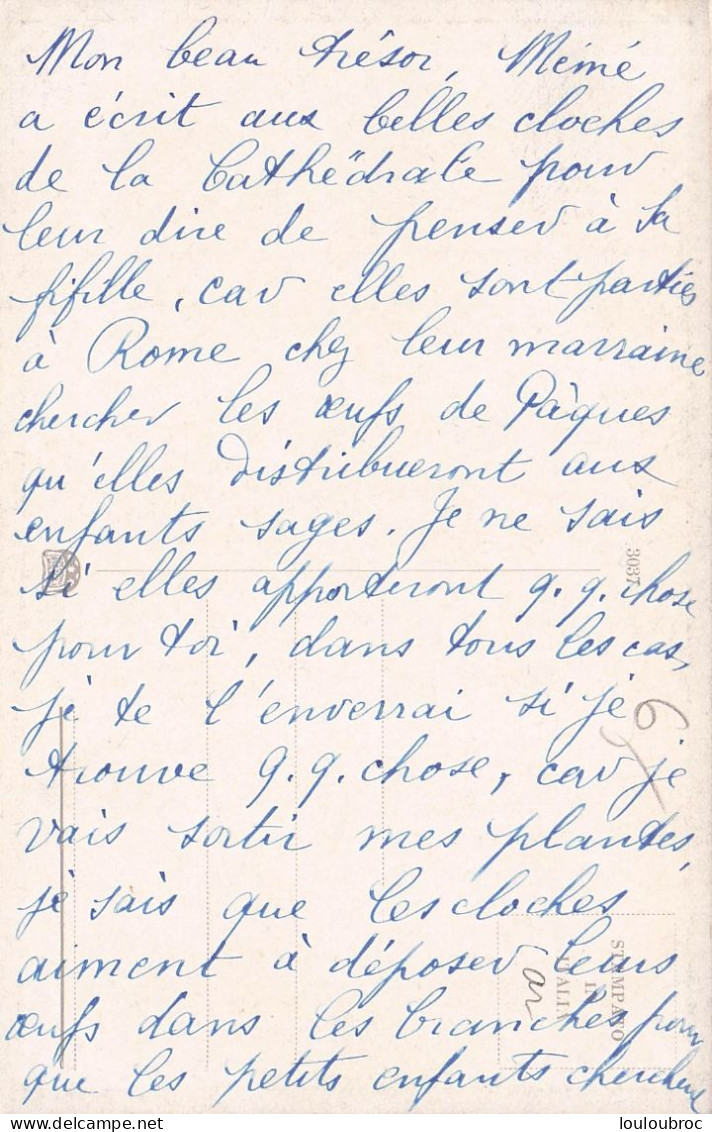 Mon beau trésor, Mémé
a écrit aux belles cloches
de la Cathédrale pour
leur dire de penser à sa
fifille, car elles sont parties
à Rome chez leur marraine
chercher les œufs de Pâques
qu'elles distribueront aux
enfants sages. Je ne sais
si elles apporteront q.q. chose
pour toi, dans tous les cas,
je te l'enverrai si je
trouve q.q. chose, car je
vais sortir mes plantes,
je sais que les cloches
aiment à déposer leurs
œufs dans les branches pour
que les petits enfants cherchent
3037
6
STAMPATO
IN
ITALIA
louloubroc